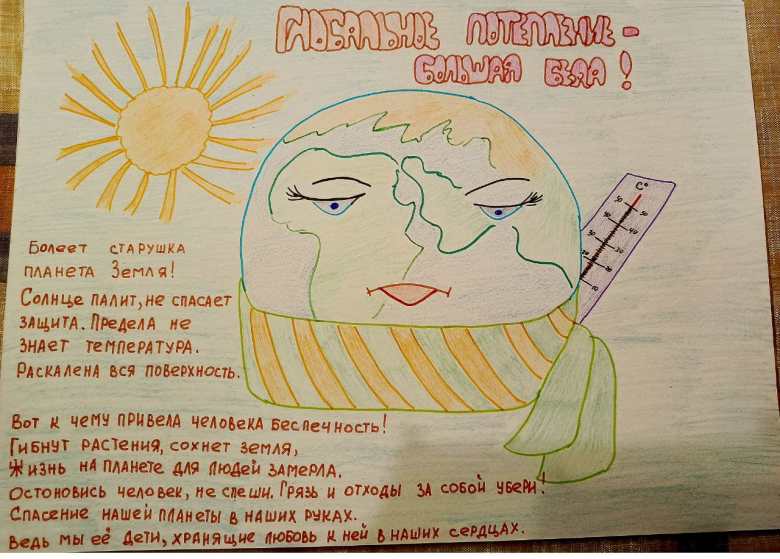 ГЛОБАЛЬНОЕ ПОТЕПЛЕНИЕ -
БОЛЬШАЯ БЕДА!
C°
50 50
40
30 30
20 20
10
Болеет старушка
планета Земля!
Солнце палит, не спасает
защита. Предела не
знает температура.
Раскалена вся поверхность.
Вот к чему привела человека беспечность!
Гибнут растения, сохнет земля,
Жизнь на планете для людей замерла.
Остоновись человек, не спеши. Грязь и отходы за собой убери!
Спасение нашей планеты в наших руках.
Ведь мы её дети, хранящие любовь к ней в наших сердцах.